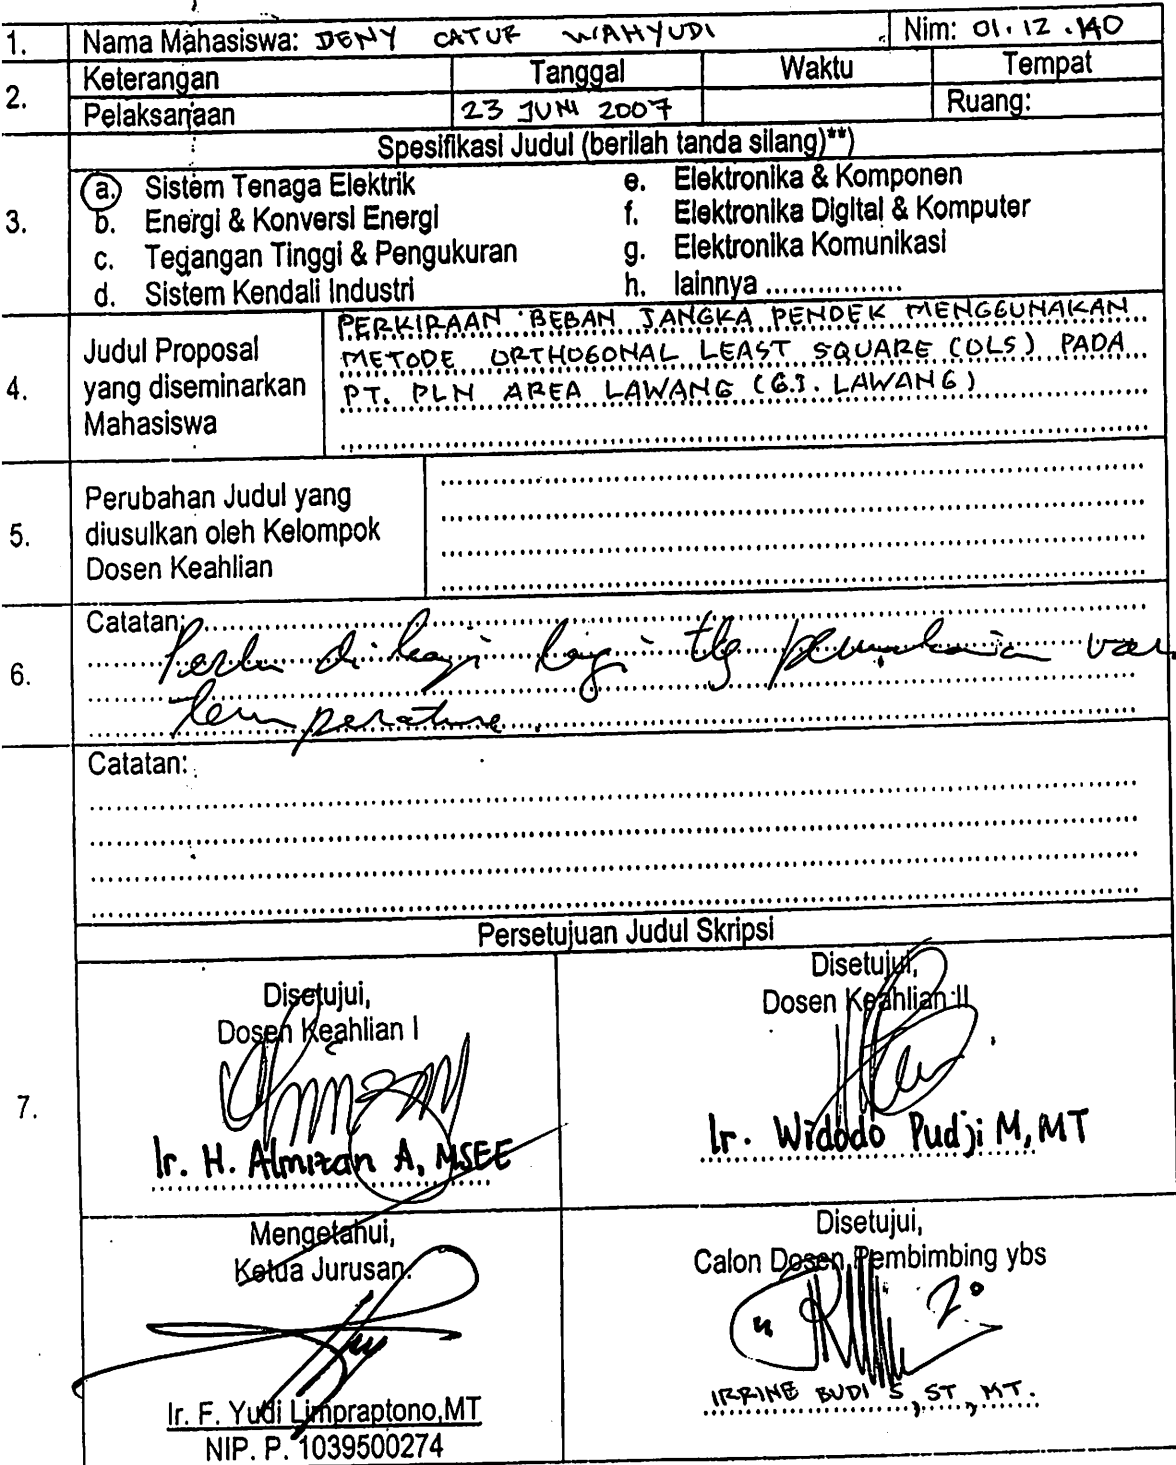 1. Nama Mahasiswa: DENY CATUR WAHYUDI Nim: 01.12.140
2. Keterangan Tanggal Waktu Tempat
Pelaksanaan 23 JUNI 2007 Ruang:
3. Spesifikasi Judul (berilah tanda silang)**)
a. Sistem Tenaga Elektrik e. Elektronika & Komponen
b. Energi & Konversi Energi f. Elektronika Digital & Komputer
c. Tegangan Tinggi & Pengukuran g. Elektronika Komunikasi
d. Sistem Kendali Industri h. lainnya ................
4. Judul Proposal yang diseminarkan Mahasiswa
PERKIRAAN BEBAN JANGKA PENDEK MENGGUNAKAN
METODE ORTHOGONAL LEAST SQUARE (OLS) PADA
PT. PLN AREA LAWANG (G.I. LAWANG)
5. Perubahan Judul yang
diusulkan oleh Kelompok
Dosen Keahlian
6. Catatan:
Perlu dikaji lagi ttg pemakaian var.
temperature.
Catatan:
7. Persetujuan Judul Skripsi
Disetujui,
Dosen Keahlian I
Ir. H. Almizan A, MSEE
Disetujui,
Dosen Keahlian II
Ir. Widodo Pudji M, MT
Mengetahui,
Ketua Jurusan.
Ir. F. Yudi Limpraptono,MT
NIP. P. 1039500274
Disetujui,
Calon Dosen Pembimbing ybs
IRRINE BUDI S, ST, MT.